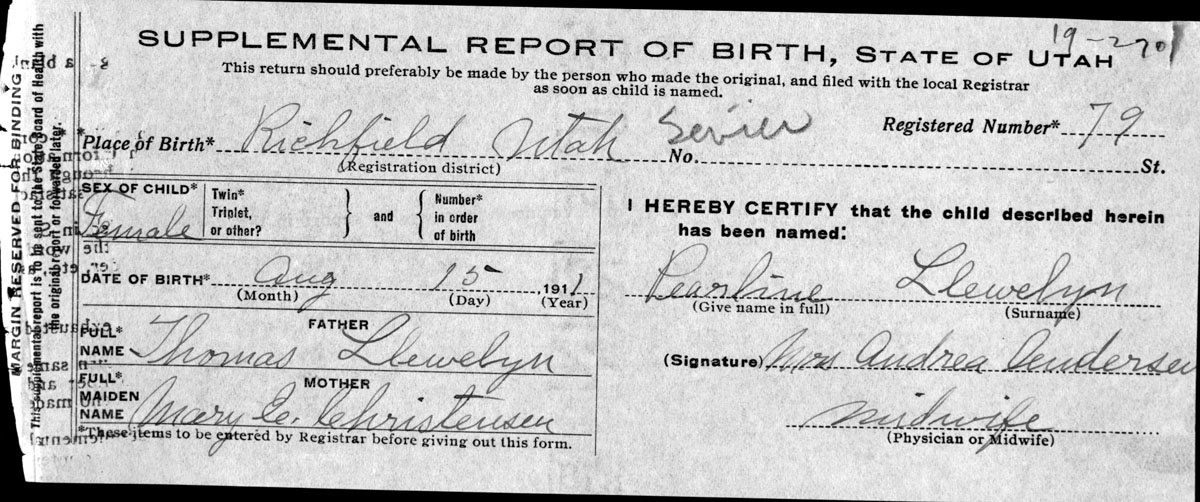 19-2701
SUPPLEMENTAL REPORT OF BIRTH, STATE OF UTAH
This return should preferably be made by the person who made the original, and filed with the local Registrar
as soon as child is named.
Registered Number* 79
Place of Birth* Richfield Utah Sevier No. St.
(Registration district)
SEX OF CHILD* Female
Twin* Triplet, or other? } and { Number* in order of birth
DATE OF BIRTH* Aug 15 1911
(Month) (Day) (Year)
FATHER
FULL* NAME Thomas Llewelyn
MOTHER
FULL* MAIDEN NAME Mary E. Christensen
*These items to be entered by Registrar before giving out this form.
I HEREBY CERTIFY that the child described herein
has been named:
Pearline Llewelyn
(Give name in full) (Surname)
(Signature) Mrs Andrea Andersen
midwife
(Physician or Midwife)
MARGIN RESERVED FOR BINDING
This supplemental report is to be sent to the State Board of Health with
the original report or forwarded later.